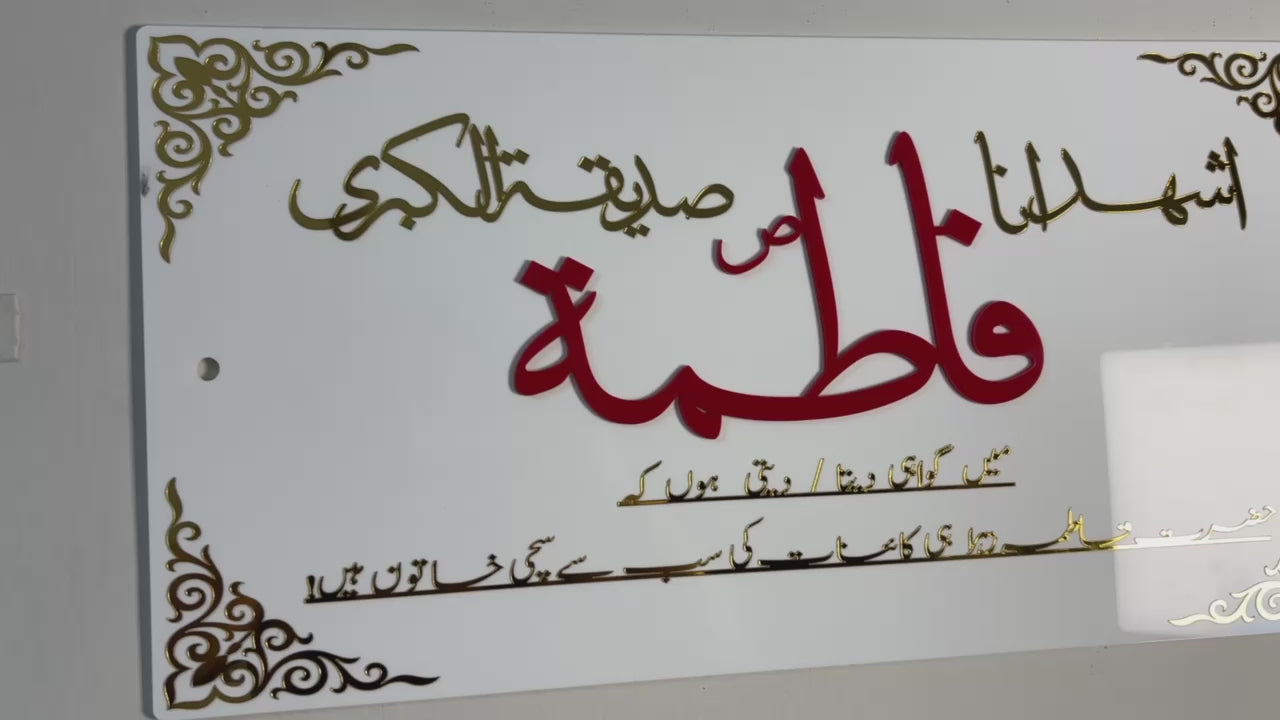 اشهد انا فاطمة ص صديقة الكبرى
میں گواہی دیتا / دیتی ہوں کہ
حضرت فاطمہ زہرا ہی کائنات کی سب سے سچی خاتون ہیں!